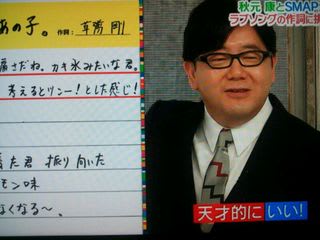 あの子。 作詞:草彅 剛
痛さだね。カキ氷みたいな君。
考えるとツンー!とした感じ!
た君 振り向いた
モン味
なくなる〜。
秋元 康とSMAP
ラブソングの作詞に挑
天才的にいい!